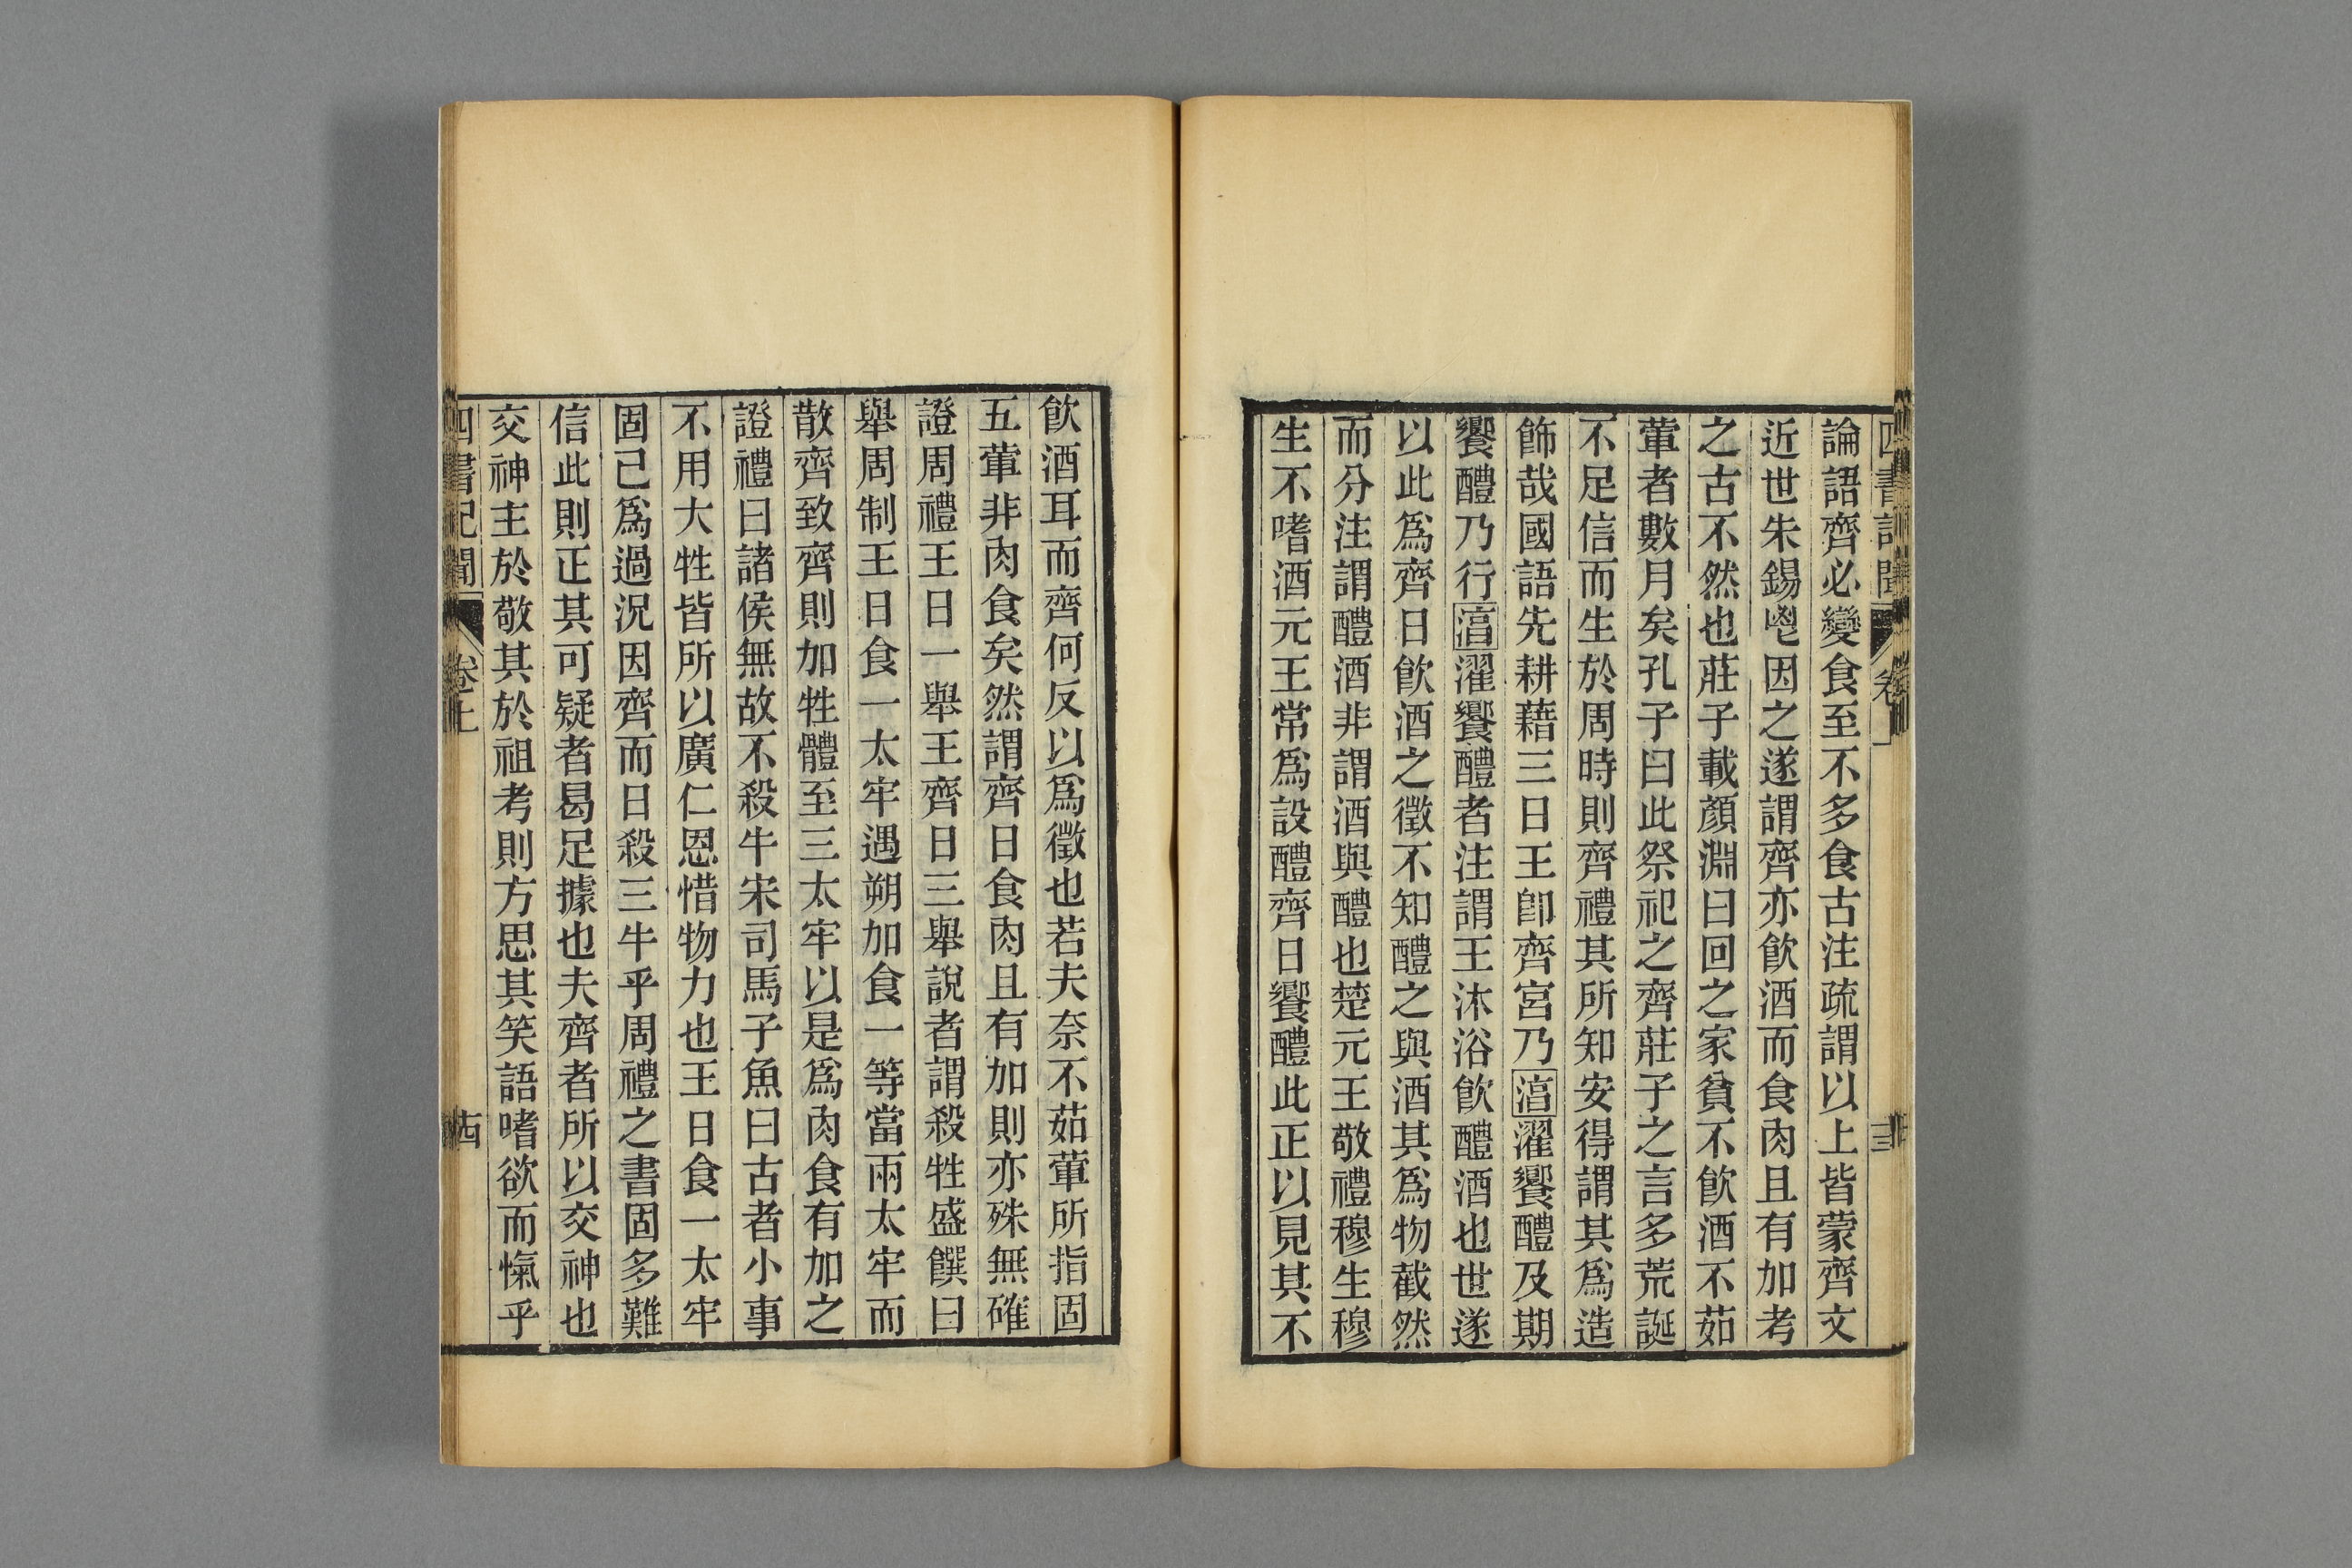 四書記聞 卷上 十三
論語齊必變食至不多食古注疏謂以上皆蒙齊文
近世朱錫鬯因之遂謂齊亦飮酒而食肉且有加考
之古不然也莊子載顏淵曰回之家貧不飮酒不茹
葷者數月矣孔子曰此祭祀之齊莊子之言多荒誕
不足信而生於周時則齊禮其所知安得謂其爲造
飾哉國語先耕藉三日王卽齊宮乃湻濯饗醴及期
饗醴乃行湻濯饗醴者注謂王沐浴飮醴酒也世遂
以此爲齊日飮酒之徵不知醴之與酒其爲物截然
而分注謂醴酒非謂酒與醴也楚元王敬禮穆生穆
生不嗜酒元王常爲設醴齊日饗醴此正以見其不
飮酒耳而齊何反以爲徵也若夫奈不茹葷所指固
五葷非肉食矣然謂齊日食肉且有加則亦殊無確
證周禮王日一舉王齊日三舉說者謂殺牲盛饌曰
舉周制王日食一太牢遇朔加食一等當兩太牢而
散齊致齊則加牲體至三太牢以是爲肉食有加之
證禮曰諸侯無故不殺牛宋司馬子魚曰古者小事
不用大牲皆所以廣仁恩惜物力也王日食一太牢
固己爲過況因齊而日殺三牛乎周禮之書固多難
信此則正其可疑者曷足據也夫齊者所以交神也
交神主於敬其於祖考則方思其笑語嗜欲而愾乎
四書記聞 卷上 十四